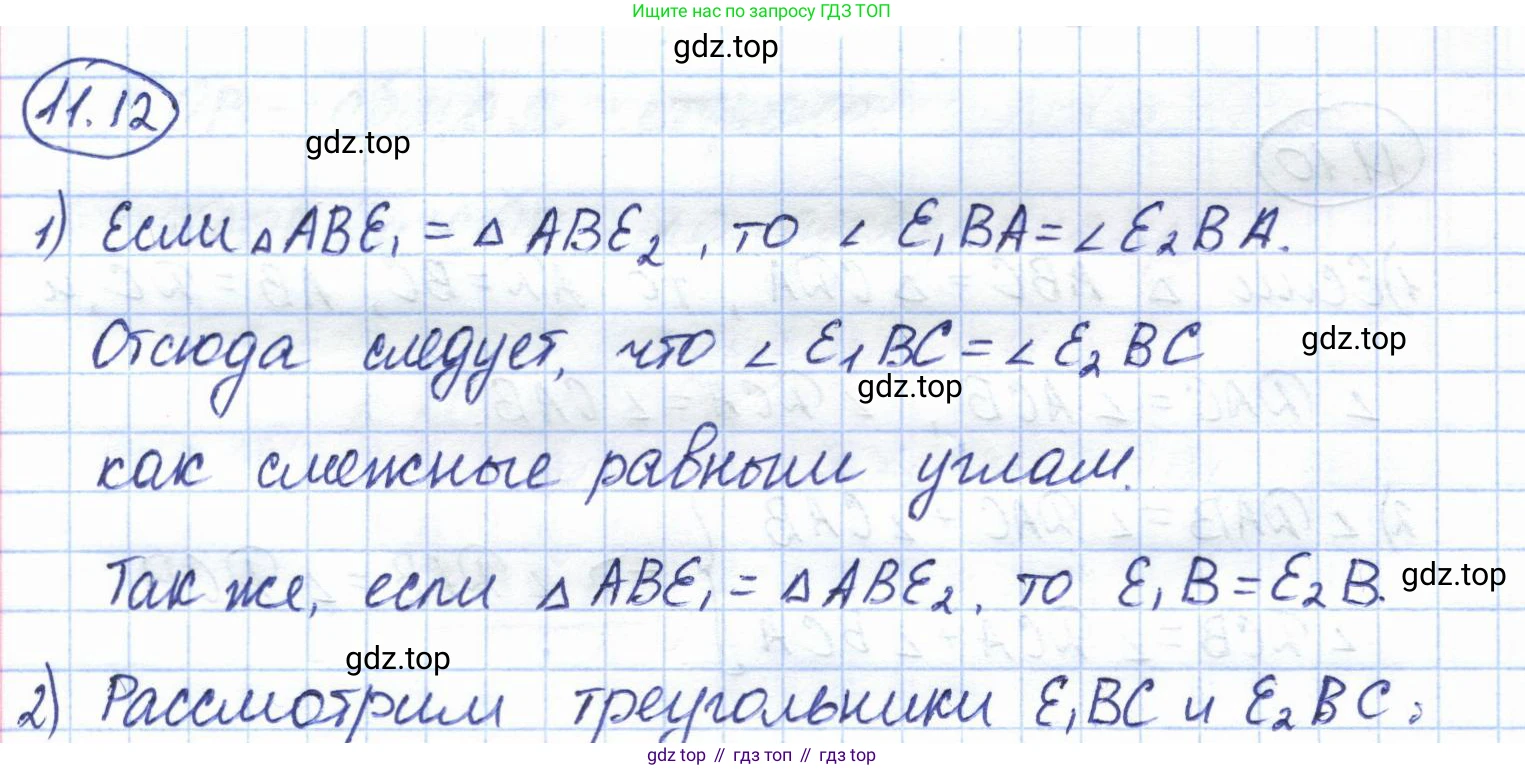 Ищите нас по запросу ГДЗ ТОП
gdz.top
11.12
gdz.top
1) Если △ABE₁ = △ABE₂, то ∠E₁BA = ∠E₂BA.
Отсюда следует, что ∠E₁BC = ∠E₂BC
gdz.top
gdz.top
как смежные равным углам.
Так же, если △ABE₁ = △ABE₂, то E₁B = E₂B.
gdz.top
gdz.top
2) Рассмотрим треугольники E₁BC и E₂BC:
gdz.top // гдз топ // гдз top